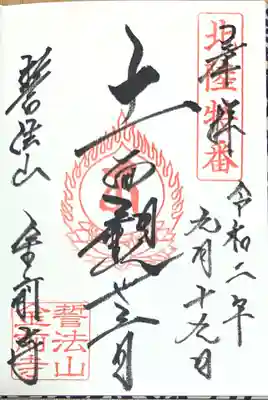 北陸特番
奉拝
令和二年
九月十九日
十一面観世音
誓法山
金前寺
誓法山
金前寺